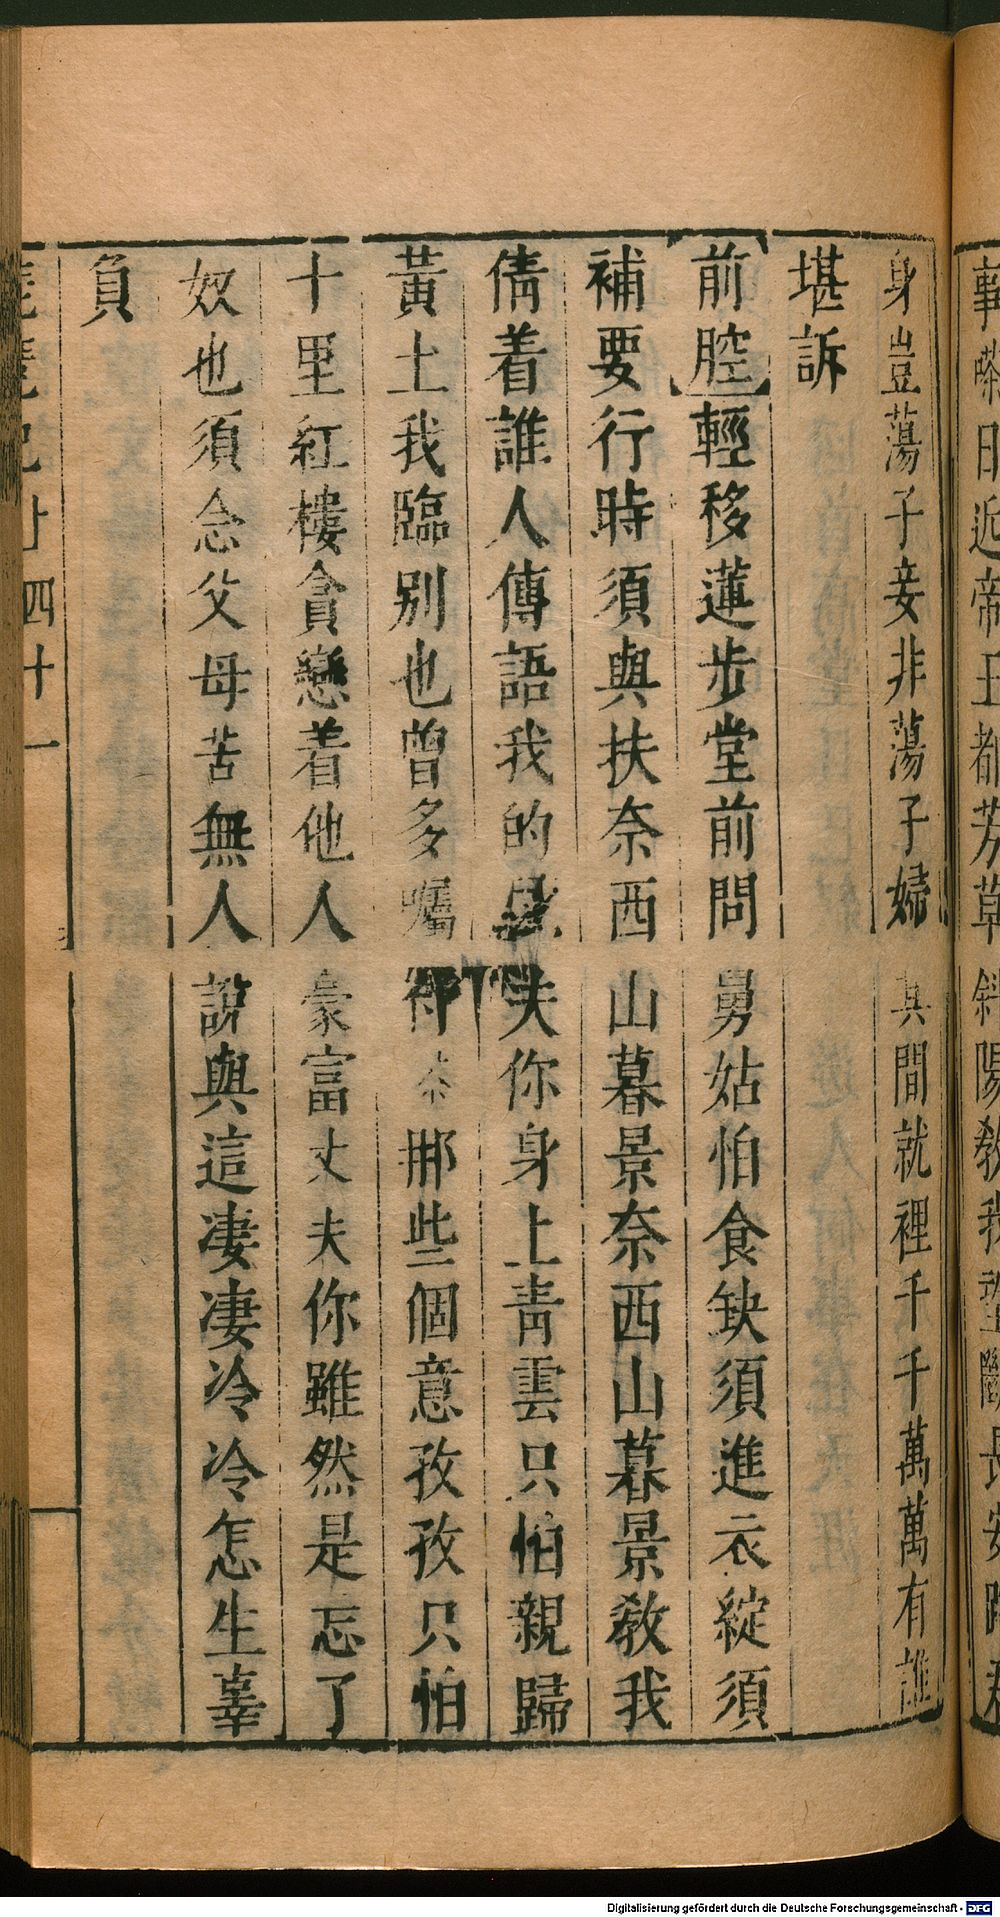 事日近帝丘都芳草斜陽教我望斷長安路君
身豈蕩子妾非蕩子婦其間就裡千千萬萬有誰
堪訴
前腔輕移蓮步堂前問舅姑怕食缺須進衣綻須
補要行時須與扶奈西山暮景奈西山暮景教我
倩着誰人傳語我的夫你身上青雲只怕親歸
黃土我臨別也曾多囑付那些個意孜孜只怕
十里紅樓貪戀着他人豪富丈夫你雖然是忘了
奴也須念父母苦無人說與這凄凄冷冷怎生辜
負
四十一
Digitalisierung gefördert durch die Deutsche Forschungsgemeinschaft - DFG